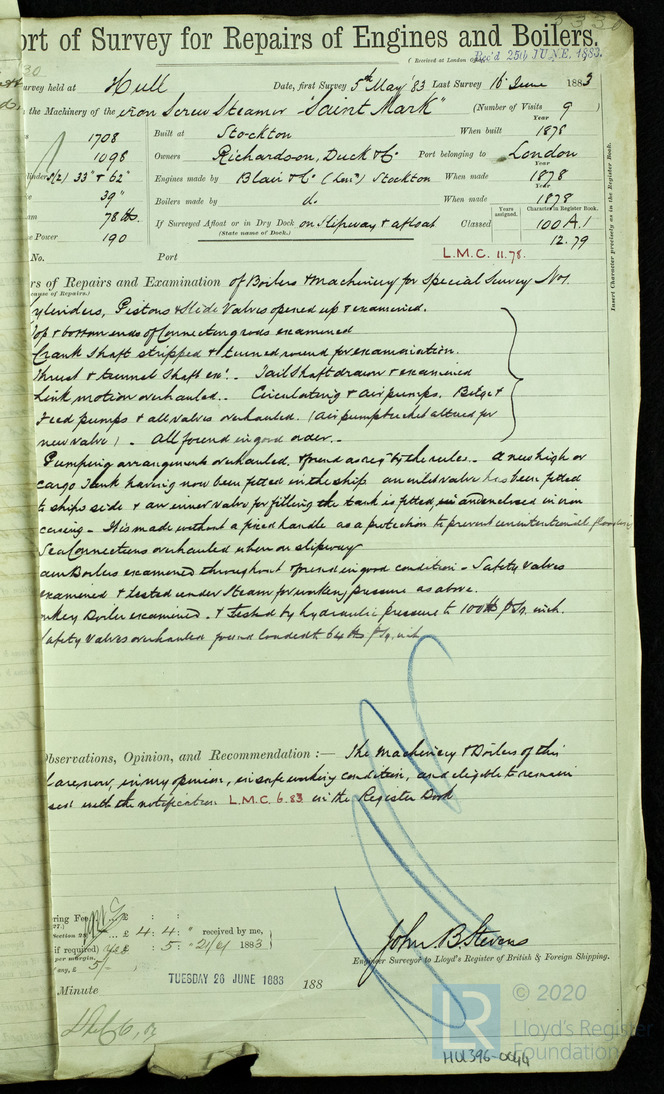 ort of Survey for Repairs of Engines and Boilers.
(Received at London Rec'd 25th JUNE. 1883.
urvey held at Hull Date, first Survey 5th May '83 Last Survey 16 June 1883
the Machinery of the iron Screw Steamer "Saint Mark" (Number of Visits 9 )
1708 Built at Stockton When built Year 1878
1098 Owners Richardson, Duck & Co Port belonging to London
33" & 62" Engines made by Blair & Co (Lim) Stockton When made Year 1878
39" Boilers made by do. When made Year 1878
78 lbs. If Surveyed Afloat or in Dry Dock on Slipway & afloat Classed Years assigned. Character in Register Book. 100 A.1
e Power 190 (State name of Dock.) 12.79
No. Port L.M.C. 11.78.
Insert Character precisely as in the Register Book.
rs of Repairs and Examination of Boilers & Machinery for Special Survey No 1.
cause of Repairs.)
ylinders, Pistons & Slide Valves opened up & examined.
Top & bottom ends of Connecting rods examined
Crank Shaft stripped & turned round for examination.
Thrust & tunnel Shaft exd. Tail Shaft drawn & examined
Link motion overhauled. Circulating & air pumps. Bilge &
Feed pumps & all valves overhauled. (Air pump bucket altered for
new valve). All found in good order.
Pumping arrangements overhauled, & found as reqd by the rules. A new high or
cargo Tank having now been fitted in the ship an inlet valve has been fitted
to ships side & an inner valve for filling the tank is fitted, and enclosed in iron
casing. It is made without a fixed handle as a protection to prevent unintentional flooding
Sea Connections overhauled when on slipway
ain Boilers examined throughout & found in good condition. Safety Valves
examined & tested under Steam for working pressure as above.
nkey Boiler examined. & tested by hydraulic pressure to 100 lbs p Sq. inch.
afety Valves overhauled found loaded to 64 lbs p Sq. inch
Observations, Opinion, and Recommendation :— The Machinery & Boilers of this
l are now, in my opinion, in safe working condition, and eligible to remain
ssed with the notification L.M.C. 6.83 in the Register Book
ring Fee £ : :
ection £ 4 : 4 : " received by me,
if required) £ : 5 : " 21/6/ 1883
per margin.
any, £ 5/-
John B. Stevens
Engineer Surveyor to Lloyd's Register of British & Foreign Shipping.
Minute TUESDAY 26 JUNE 1883 188
LR © 2020
Lloyd's Register
Foundation
HU396-0044